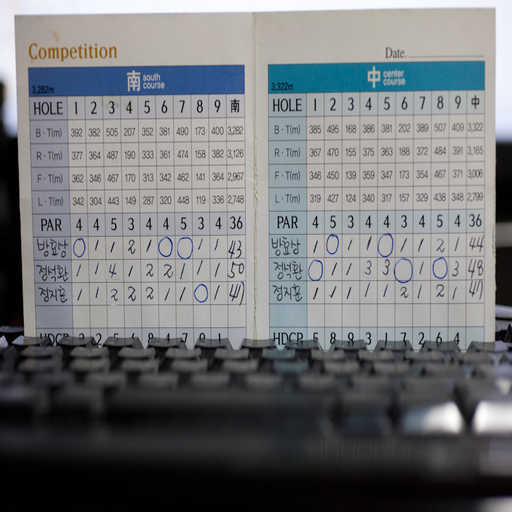 Competition
3,282m 南 south course
HOLE 1 2 3 4 5 6 7 8 9 南
B·T(m) 392 382 505 207 352 381 490 173 400 3,282
R·T(m) 377 364 487 190 333 361 474 158 382 3,126
F·T(m) 362 346 467 170 313 342 462 141 364 2,967
L·T(m) 342 304 443 149 287 320 448 119 336 2,748
PAR 4 4 5 3 4 4 5 3 4 36
방효상 0 1 1 2 1 0 0 1 1 43
정석환 1 1 4 1 2 2 1 1 1 50
정지훈 1 1 2 2 2 1 1 0 1 47
HDCP
Date.
3,322m 中 center course
HOLE 1 2 3 4 5 6 7 8 9 中
B·T(m) 385 495 168 386 381 202 389 507 409 3,322
R·T(m) 367 470 155 375 363 188 372 484 391 3,165
F·T(m) 346 450 139 359 347 173 354 467 371 3,006
L·T(m) 319 427 124 340 317 157 329 438 348 2,799
PAR 4 5 3 4 4 3 4 5 4 36
방효상 1 0 1 1 0 1 1 2 1 44
정석환 0 1 1 3 3 0 1 0 3 48
정지훈 1 1 1 1 1 2 1 2 1 47
HDCP 5 8 9 3 1 7 2 6 4